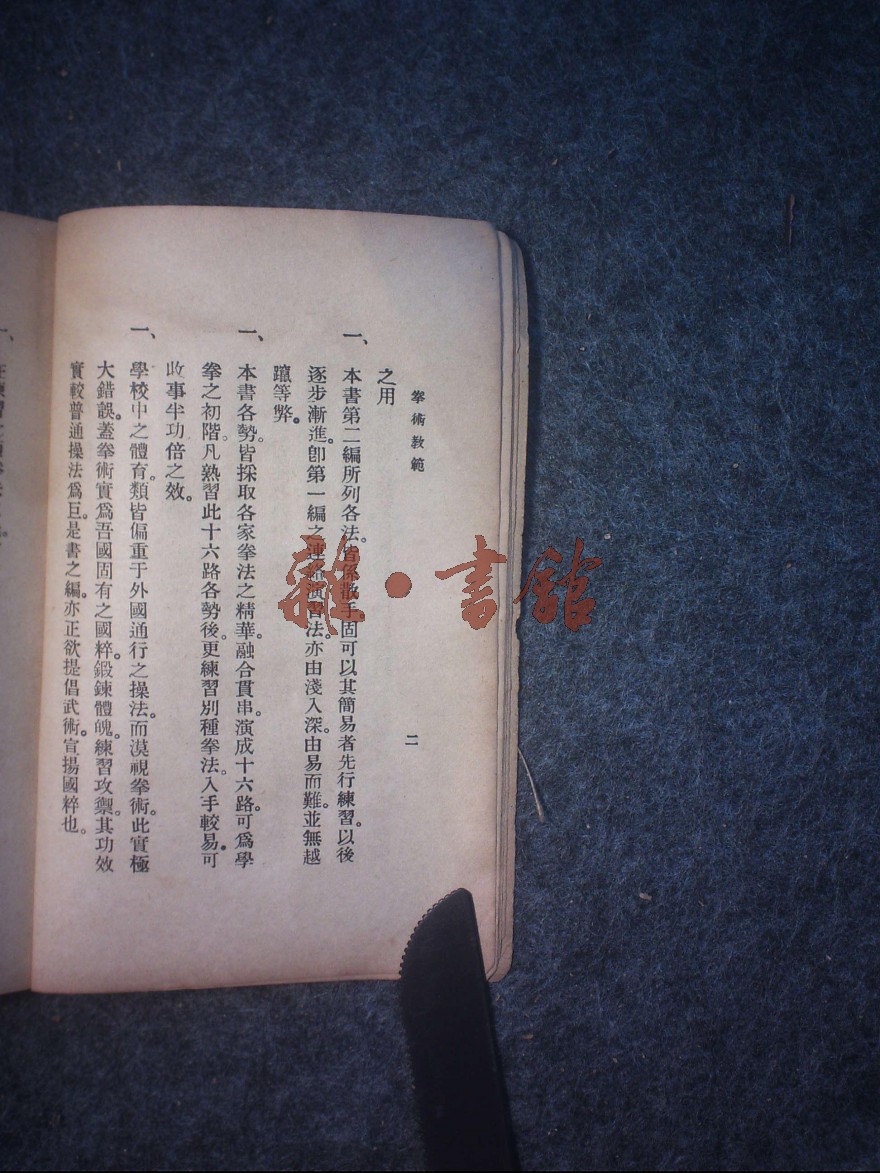 拳術教範
二
之用
一、本書第二編所列各法。皆係散手。固可以其簡易者先行練習。以後
逐步漸進。卽第一編之連絡演習法。亦由淺入深。由易而難。並無越
躐等弊。
一、本書各勢。皆採取各家拳法之精華。融合貫串。演成十六路。可爲學
拳之初階。凡熟習此十六路各勢後。更練習別種拳法。入手較易。可
收事半功倍之效。
一、學校中之體育。類皆偏重于外國通行之操法。而漠視拳術。此實極
大錯誤。蓋拳術實爲吾國固有之國粹。鍛鍊體魄。練習攻禦。其功效
實較普通操法爲巨。是書之編。亦正欲提倡武術。宣揚國粹也。
雜·書館